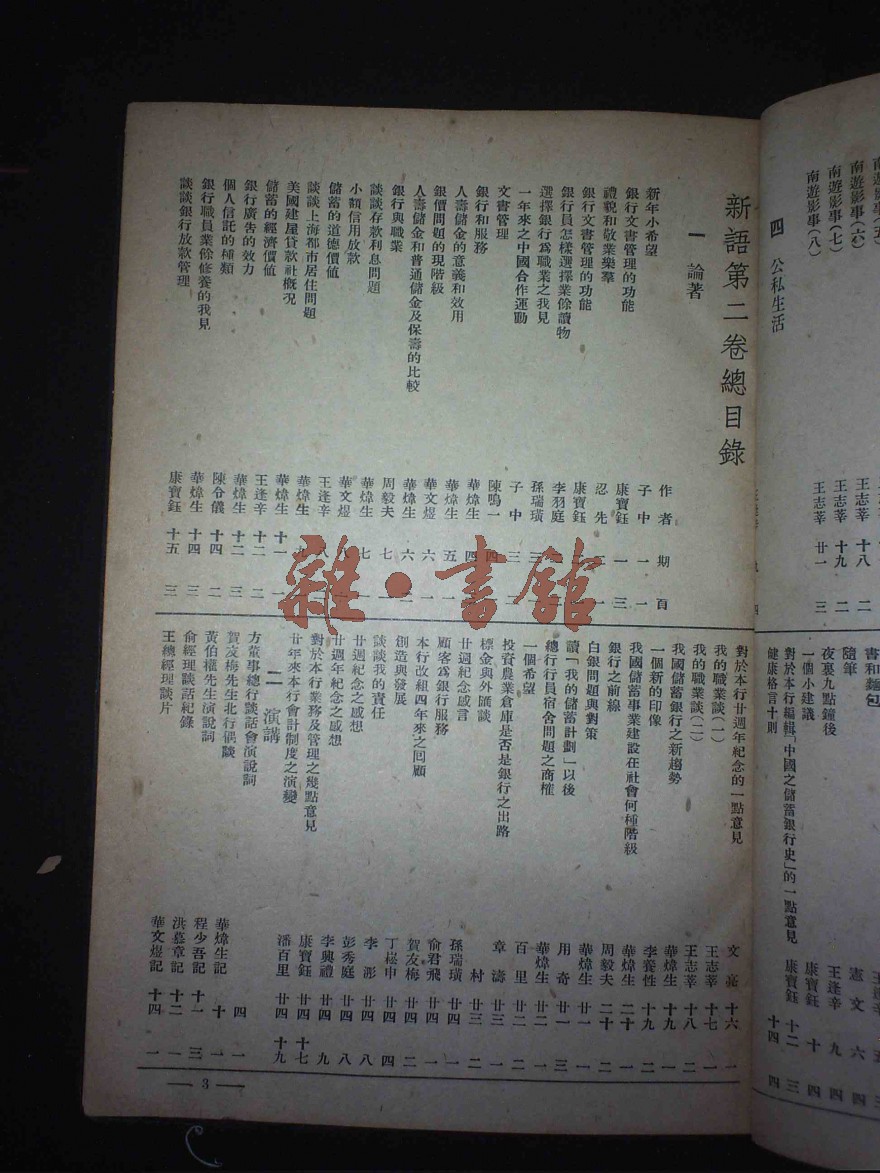 南遊影事（五）
南遊影事（六） 王志莘 十八 二
南遊影事（七） 王志莘 十九 二
南遊影事（八） 王志莘 廿一 三
四 公私生活
書和麵包
隨筆 憲文 六 四
夜裏九點鐘後 王逢辛 九 四
一個小建議 康寶鈺 十 四
對於本行編輯「中國之儲蓄銀行史」的一點意見 康寶鈺 十二 三
健康格言十則 十四 四
新語第二卷總目錄
一 論著
作者 期 頁
新年小希望 子中 一 一
銀行文書管理的功能 康寶鈺 一 三
禮貌和敬業樂羣 忍先 二 一
銀行文書管理的功能 康寶鈺
銀行員怎樣選擇業餘讀物 李羽庭
選擇銀行爲職業之我見 孫瑞璜 三
一年來之中國合作運動 子中 三
文書管理 陳鳴一 四
銀行和服務 華煒生 四
人壽儲金的意義和效用 華煒生 五
銀價問題的現階級 華文煜 六 一
人壽儲金和普通儲金及保壽的比較 華煒生 六 二
銀行與職業 周毅夫 七
談談存款利息問題 華煒生 七
小額信用放款 華文煜 八
儲蓄的道德價值 王逢辛 八
談談上海都市居住問題 華煒生 九
美國建屋貸款社概況 華煒生 十一 一
儲蓄的經濟價值 王逢辛 十二 二
銀行廣告的效力 華煒生 十二 三
個人信託的種類 陳令儀 十四 二
銀行職員業餘修養的我見 華煒生 十四 三
談談銀行放款管理 康寶鈺 十五 三
對於本行廿週年紀念的一點意見 文亮 十六 一
我的職業談（一） 王志莘 十七 一
我的職業談（二） 王志莘 十八 二
我國儲蓄銀行之新趨勢 華煒生 十九 一
一個新的印像 李養性 十九 二
我國儲蓄事業建設在社會何種階級 華煒生 二十 一
銀行之前線 周毅夫 二十 二
白銀問題與對策 華煒生 廿一 一
讀「我的儲蓄計劃」以後 用奇 廿一 三
總行行員宿舍問題之商榷 華煒生 廿二 一
一個希望 百里 廿二 二
投資農業倉庫是否是銀行之出路 章濤 廿三 一
標金與外匯談 村 廿三 二
廿週紀念感言 孫瑞璜 廿四 一
顧客爲銀行服務 俞君飛 廿四 一
本行改組四年來之回顧 賀友梅 廿四 二
創造與發展 丁裖申 廿四 四
談談我的責任 李彤 廿四 八
廿週紀念之感想 彭秀庭 廿四 八
廿週年紀念之感想 李興禮 廿四 九
對於本行業務及管理之幾點意見 康寶鈺 廿四 十七
廿年來本行會計制度之演變 潘百里 廿四 十九
二 演講
方董事總行談話會演說詞 四 一
賀友梅先生北行偶談 華煒生記 十 一
黃伯權先生演說詞 程少吾記 十一 三
俞經理談話紀錄 洪慕章記 十二 一
王總經理談片 華文煜記 十四 一
— 3 —
雜·書館